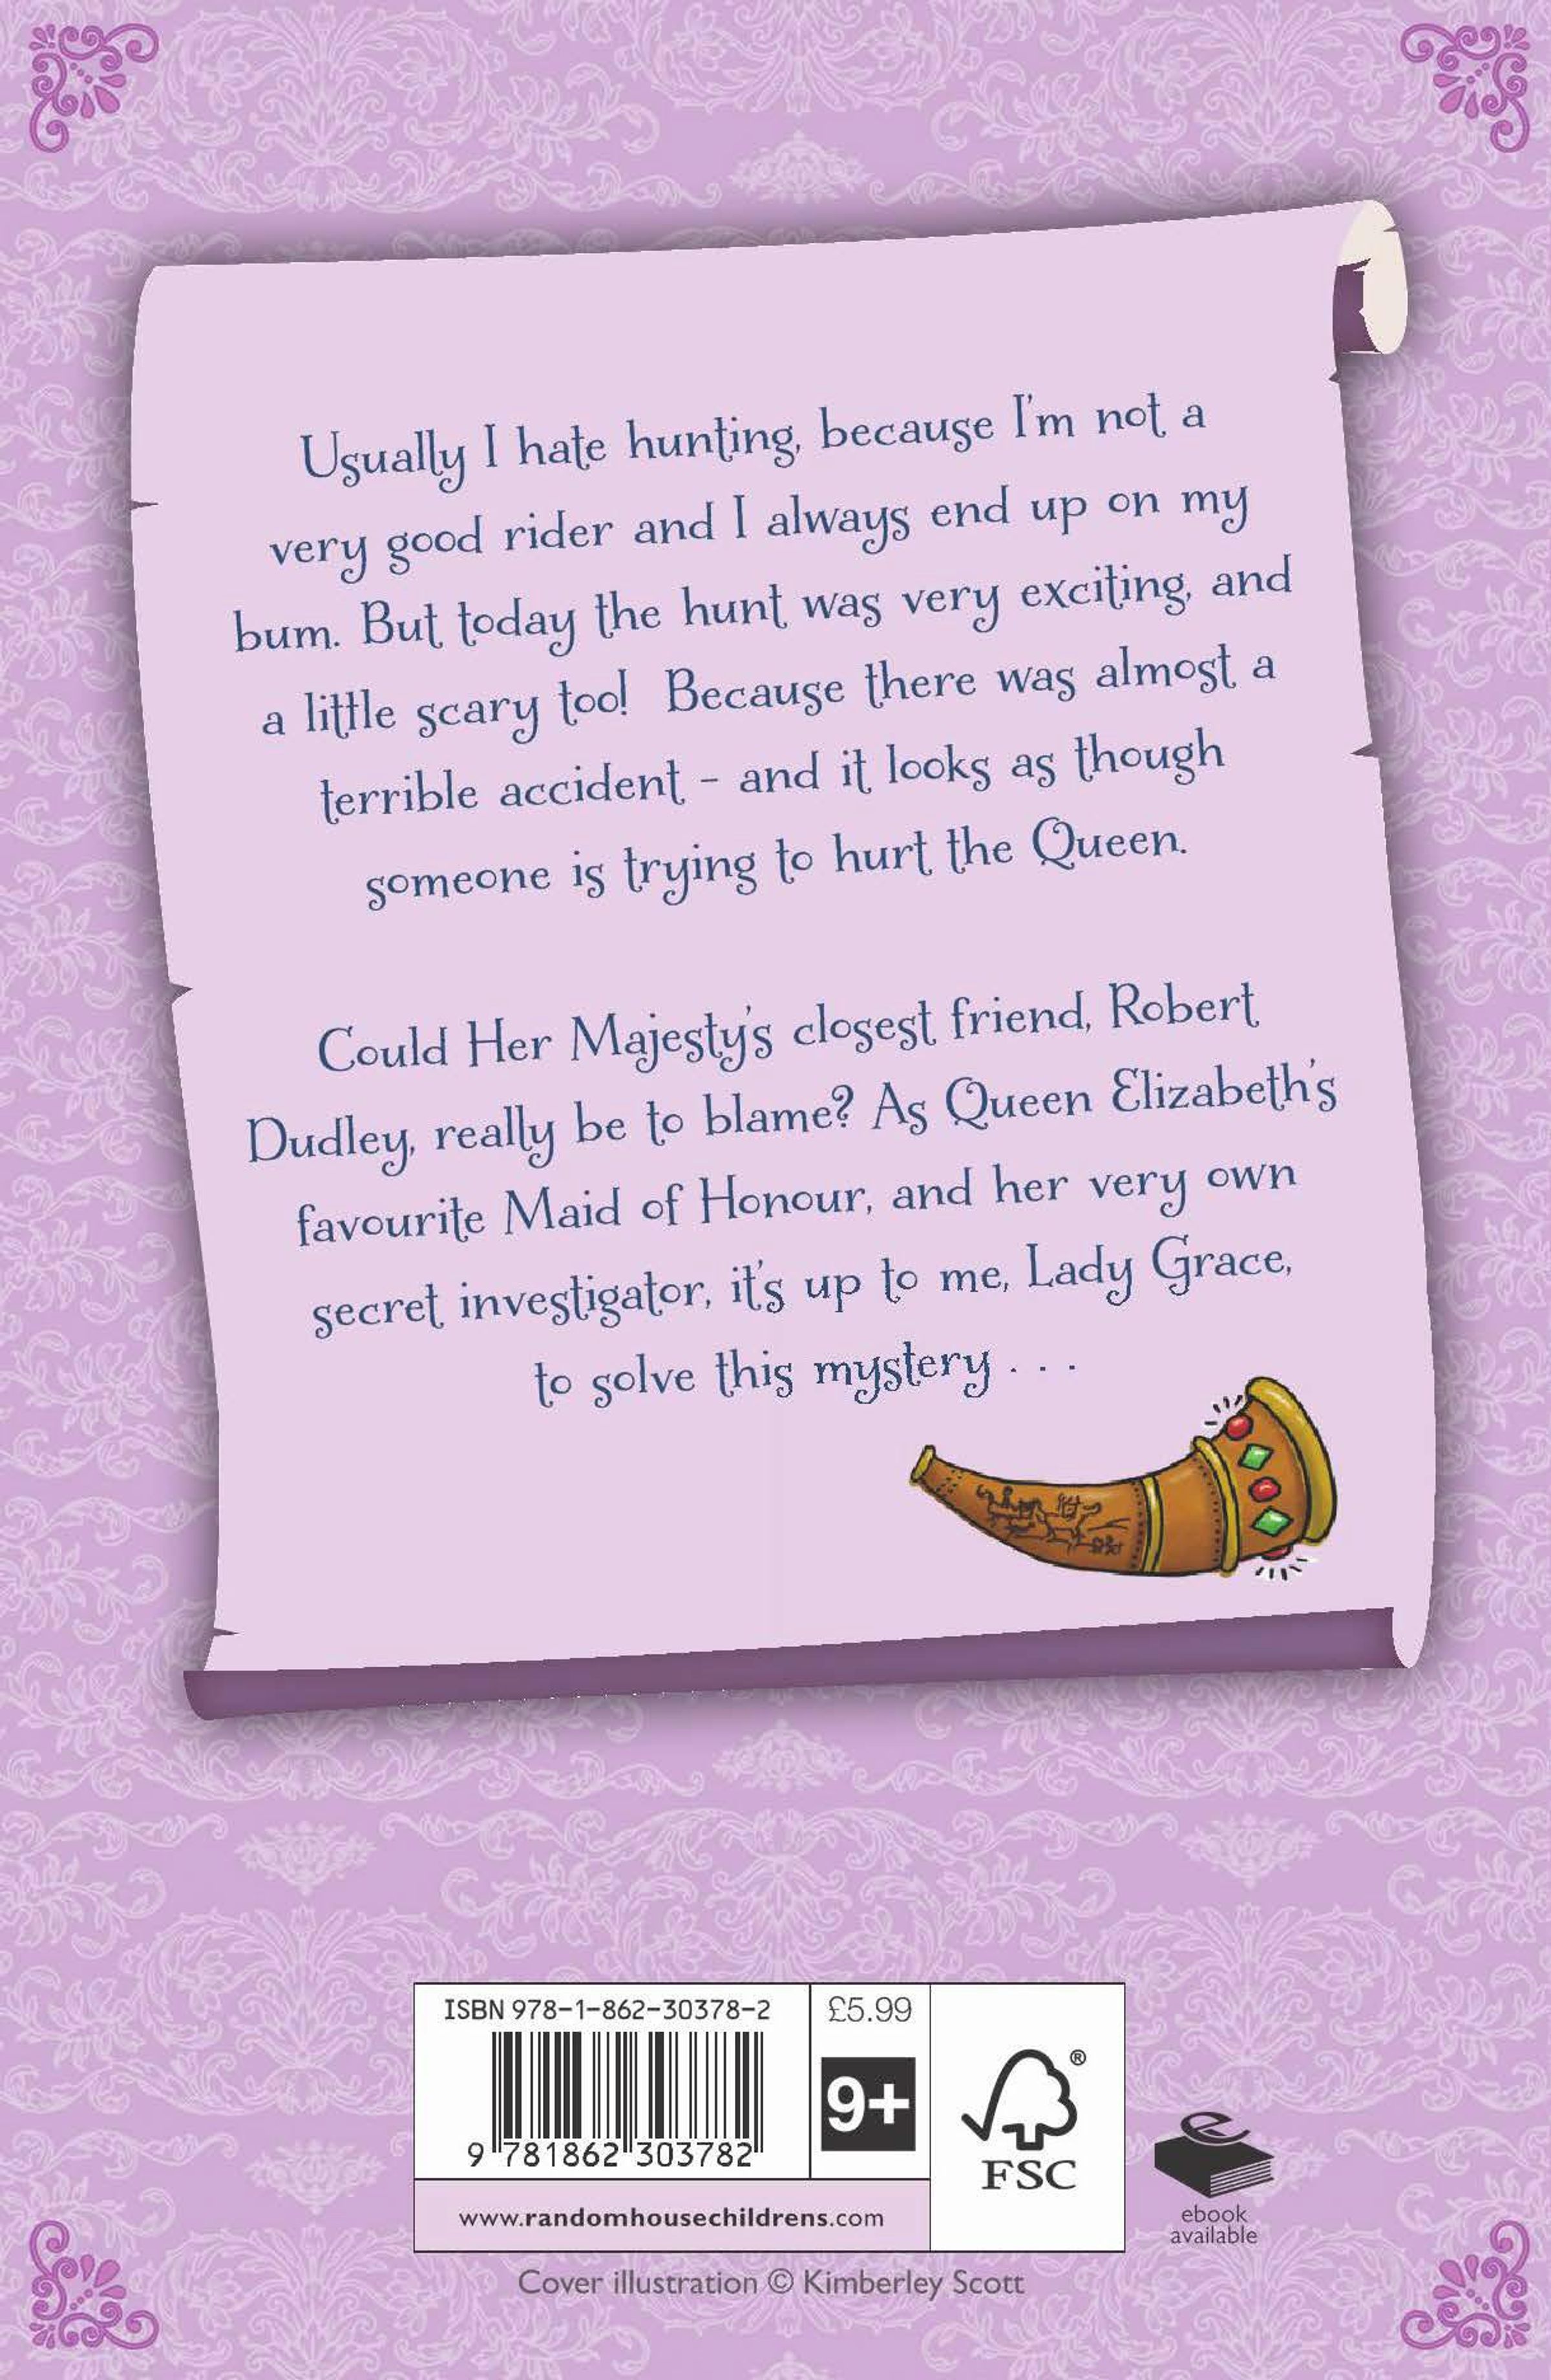 Usually I hate hunting, because I'm not a
very good rider and I always end up on my
bum. But today the hunt was very exciting, and
a little scary too! Because there was almost a
terrible accident – and it looks as though
someone is trying to hurt the Queen.
Could Her Majesty's closest friend, Robert
Dudley, really be to blame? As Queen Elizabeth's
favourite Maid of Honour, and her very own
secret investigator, it's up to me, Lady Grace,
to solve this mystery . . .
ISBN 978-1-862-30378-2
9 781862 303782
£5.99
9+
®
FSC
www.randomhousechildrens.com
e
ebook
available
Cover illustration © Kimberley Scott